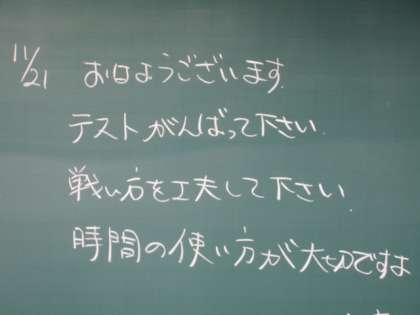 11/21 おはようございます.
テストがんばって下さい.
戦い方を工夫して下さい.
時間の使い方が大切ですよ